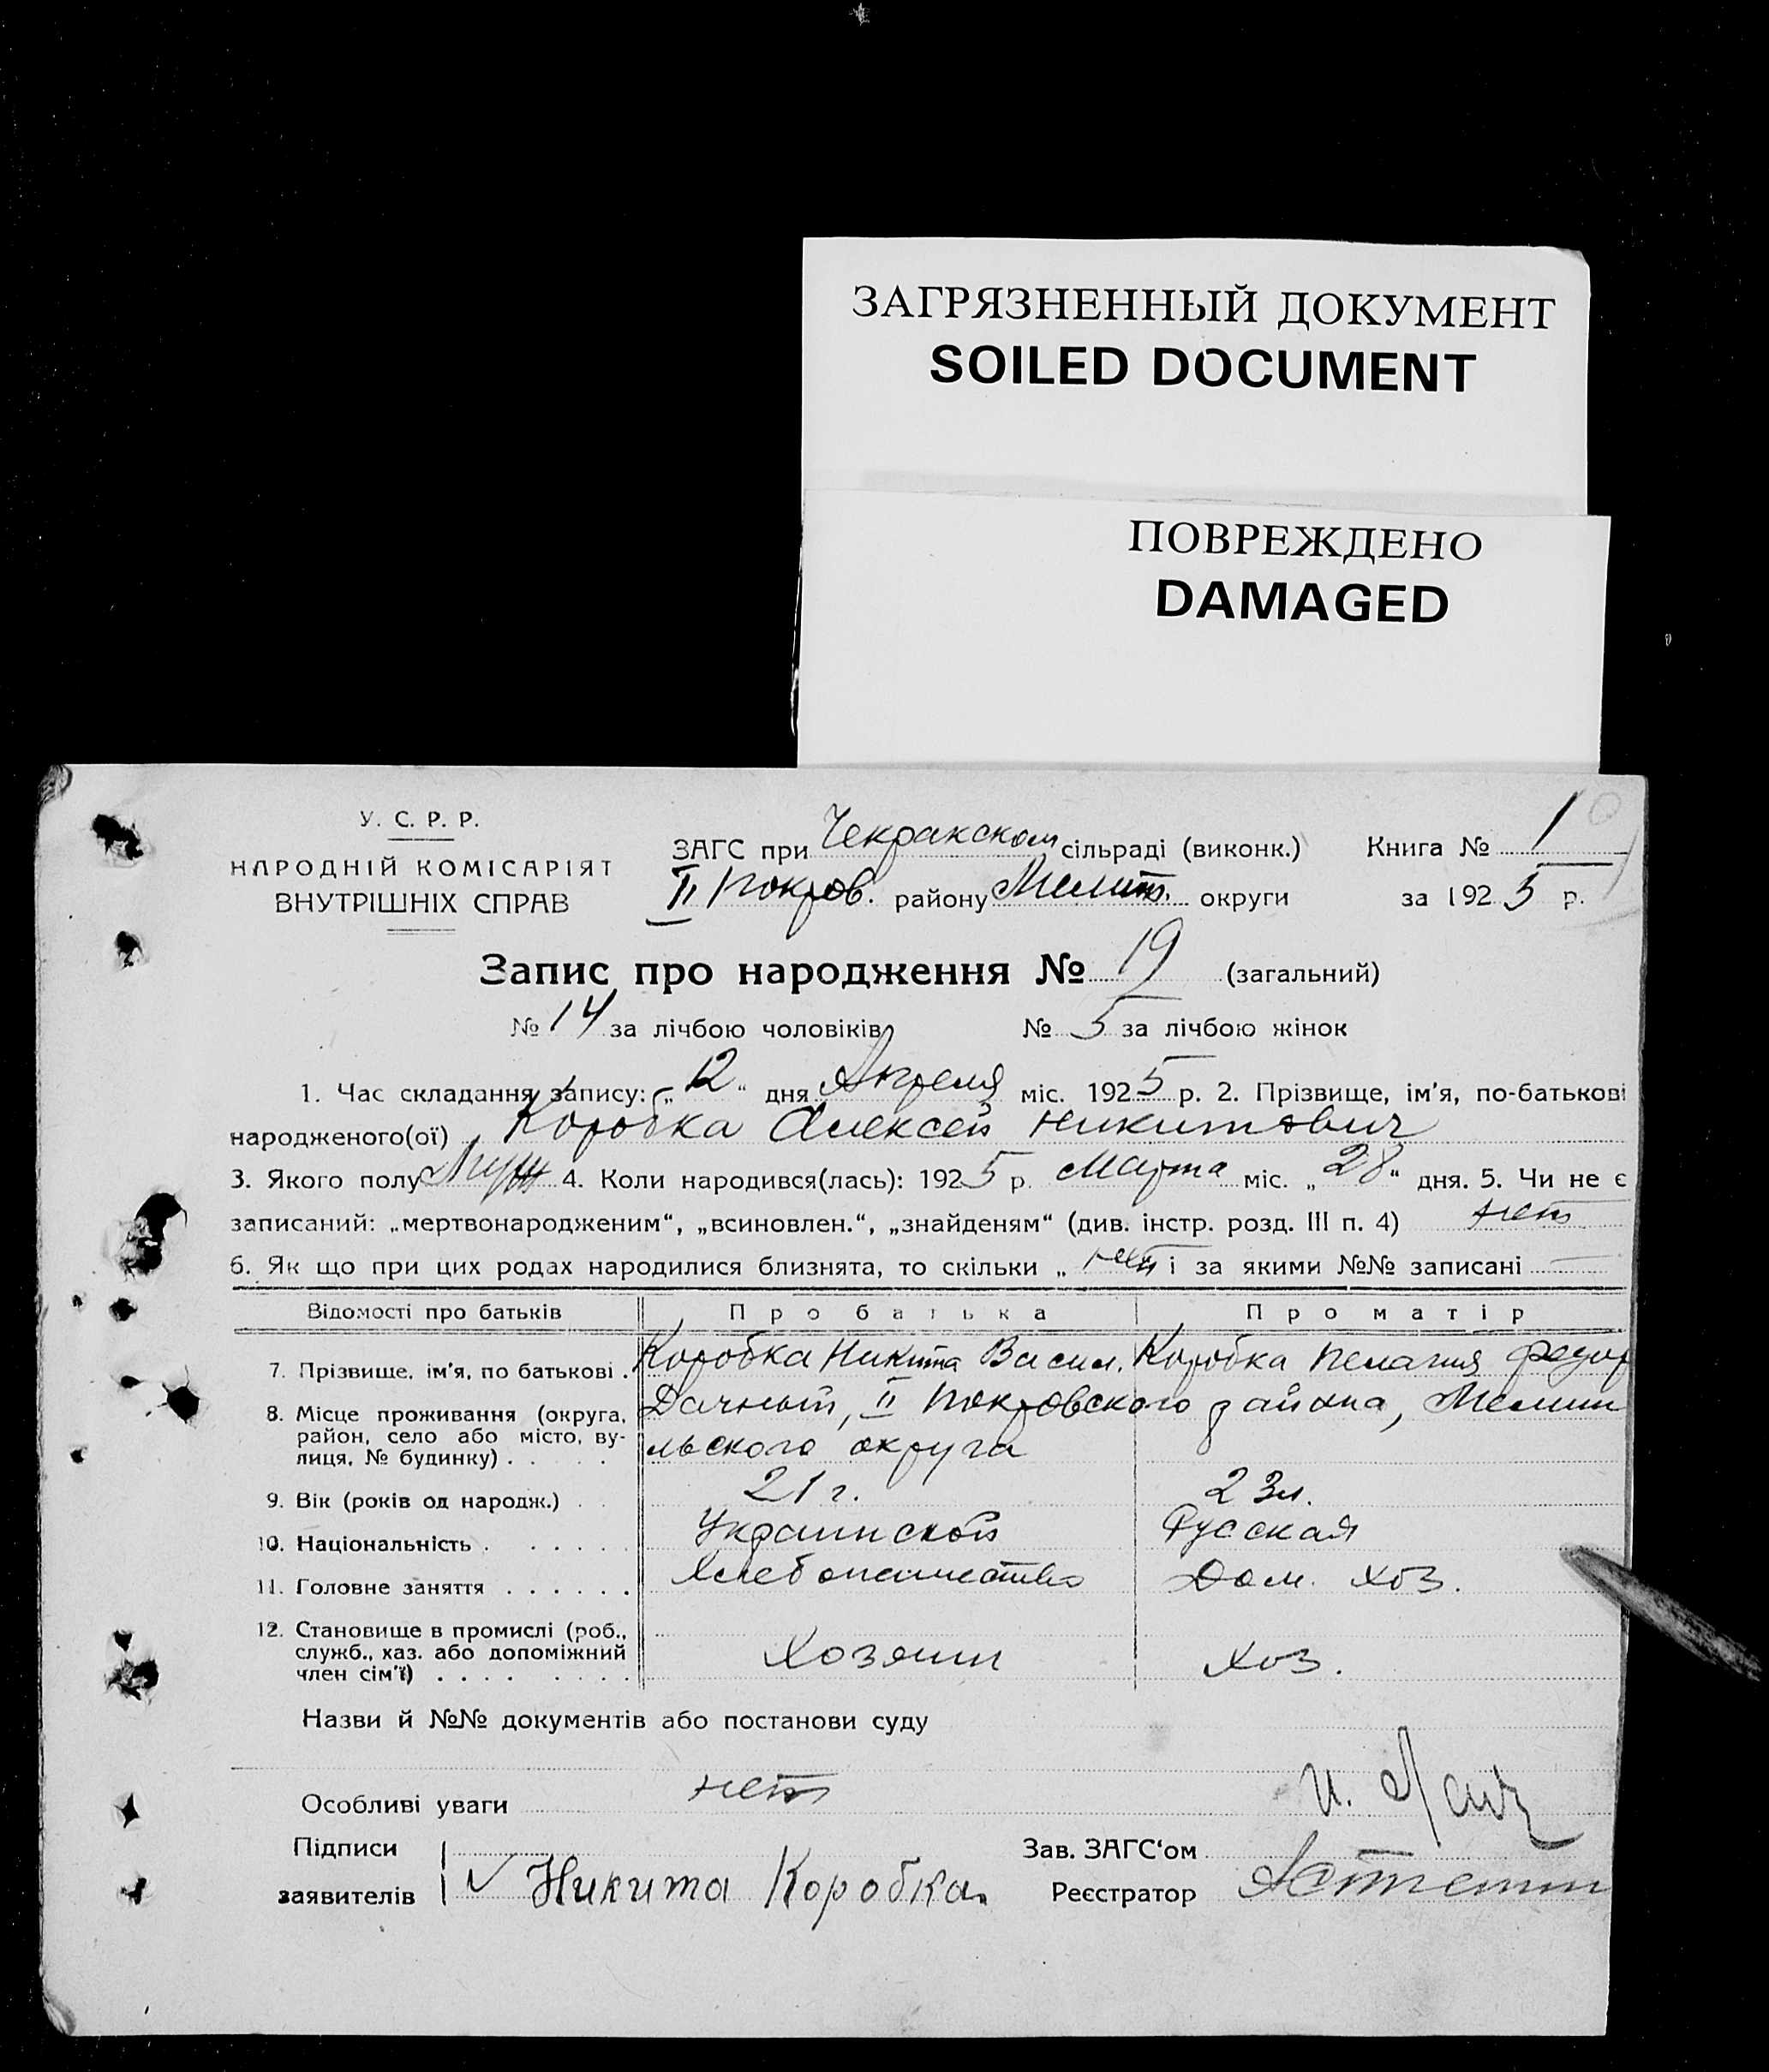 ЗАГРЯЗНЕННЫЙ ДОКУМЕНТ
SOILED DOCUMENT
ПОВРЕЖДЕНО
DAMAGED
У. С. Р. Р.
НАРОДНІЙ КОМІСАРІЯТ
ВНУТРІШНІХ СПРАВ
ЗАГС при Чекракском сільраді (виконк.)
II Покров. району Мелит. округи
Книга № 1
за 1925 р.
Запис про народження № 19 (загальний)
№ 14 за лічбою чоловіків № 5 за лічбою жінок
1. Час складання запису: „12“ дня Апреля міс. 1925 р. 2. Прізвище, ім'я, по-батькові
народженого(ої) Коробка Алексей Никитович
3. Якого полу Муж 4. Коли народився(лась): 1925 р. Марта міс. „28“ дня. 5. Чи не є
записаний: „мертвонародженим“, „всиновлен.“, „знайденям“ (див. інстр. розд. III п. 4) нет
6. Як що при цих родах народилися близнята, то скільки „ нет і за якими №№ записані —
Відомості про батьків Про батька Про матір
7. Прізвище, ім'я, по батькові . Коробка Никита Васил. Коробка Пелагия Федор
8. Місце проживання (округа, район, село або місто, вулиця, № будинку) . . . . II Покровского района, Мелит
льского округа
9. Вік (років од народж.) . . 21 г. 23 л.
10. Національність . . . . . . Украинской Русская
11. Головне заняття . . . . . . Хлебопашество Дом. хоз.
12. Становище в промислі (роб., служб., хаз. або допоміжний член сім'ї) . . . . . . . . Хозяин хоз.
Назви й №№ документів або постанови суду
Особливі уваги нет
Підписи
заявителів Никита Коробка.
Зав. ЗАГС'ом
Реєстратор